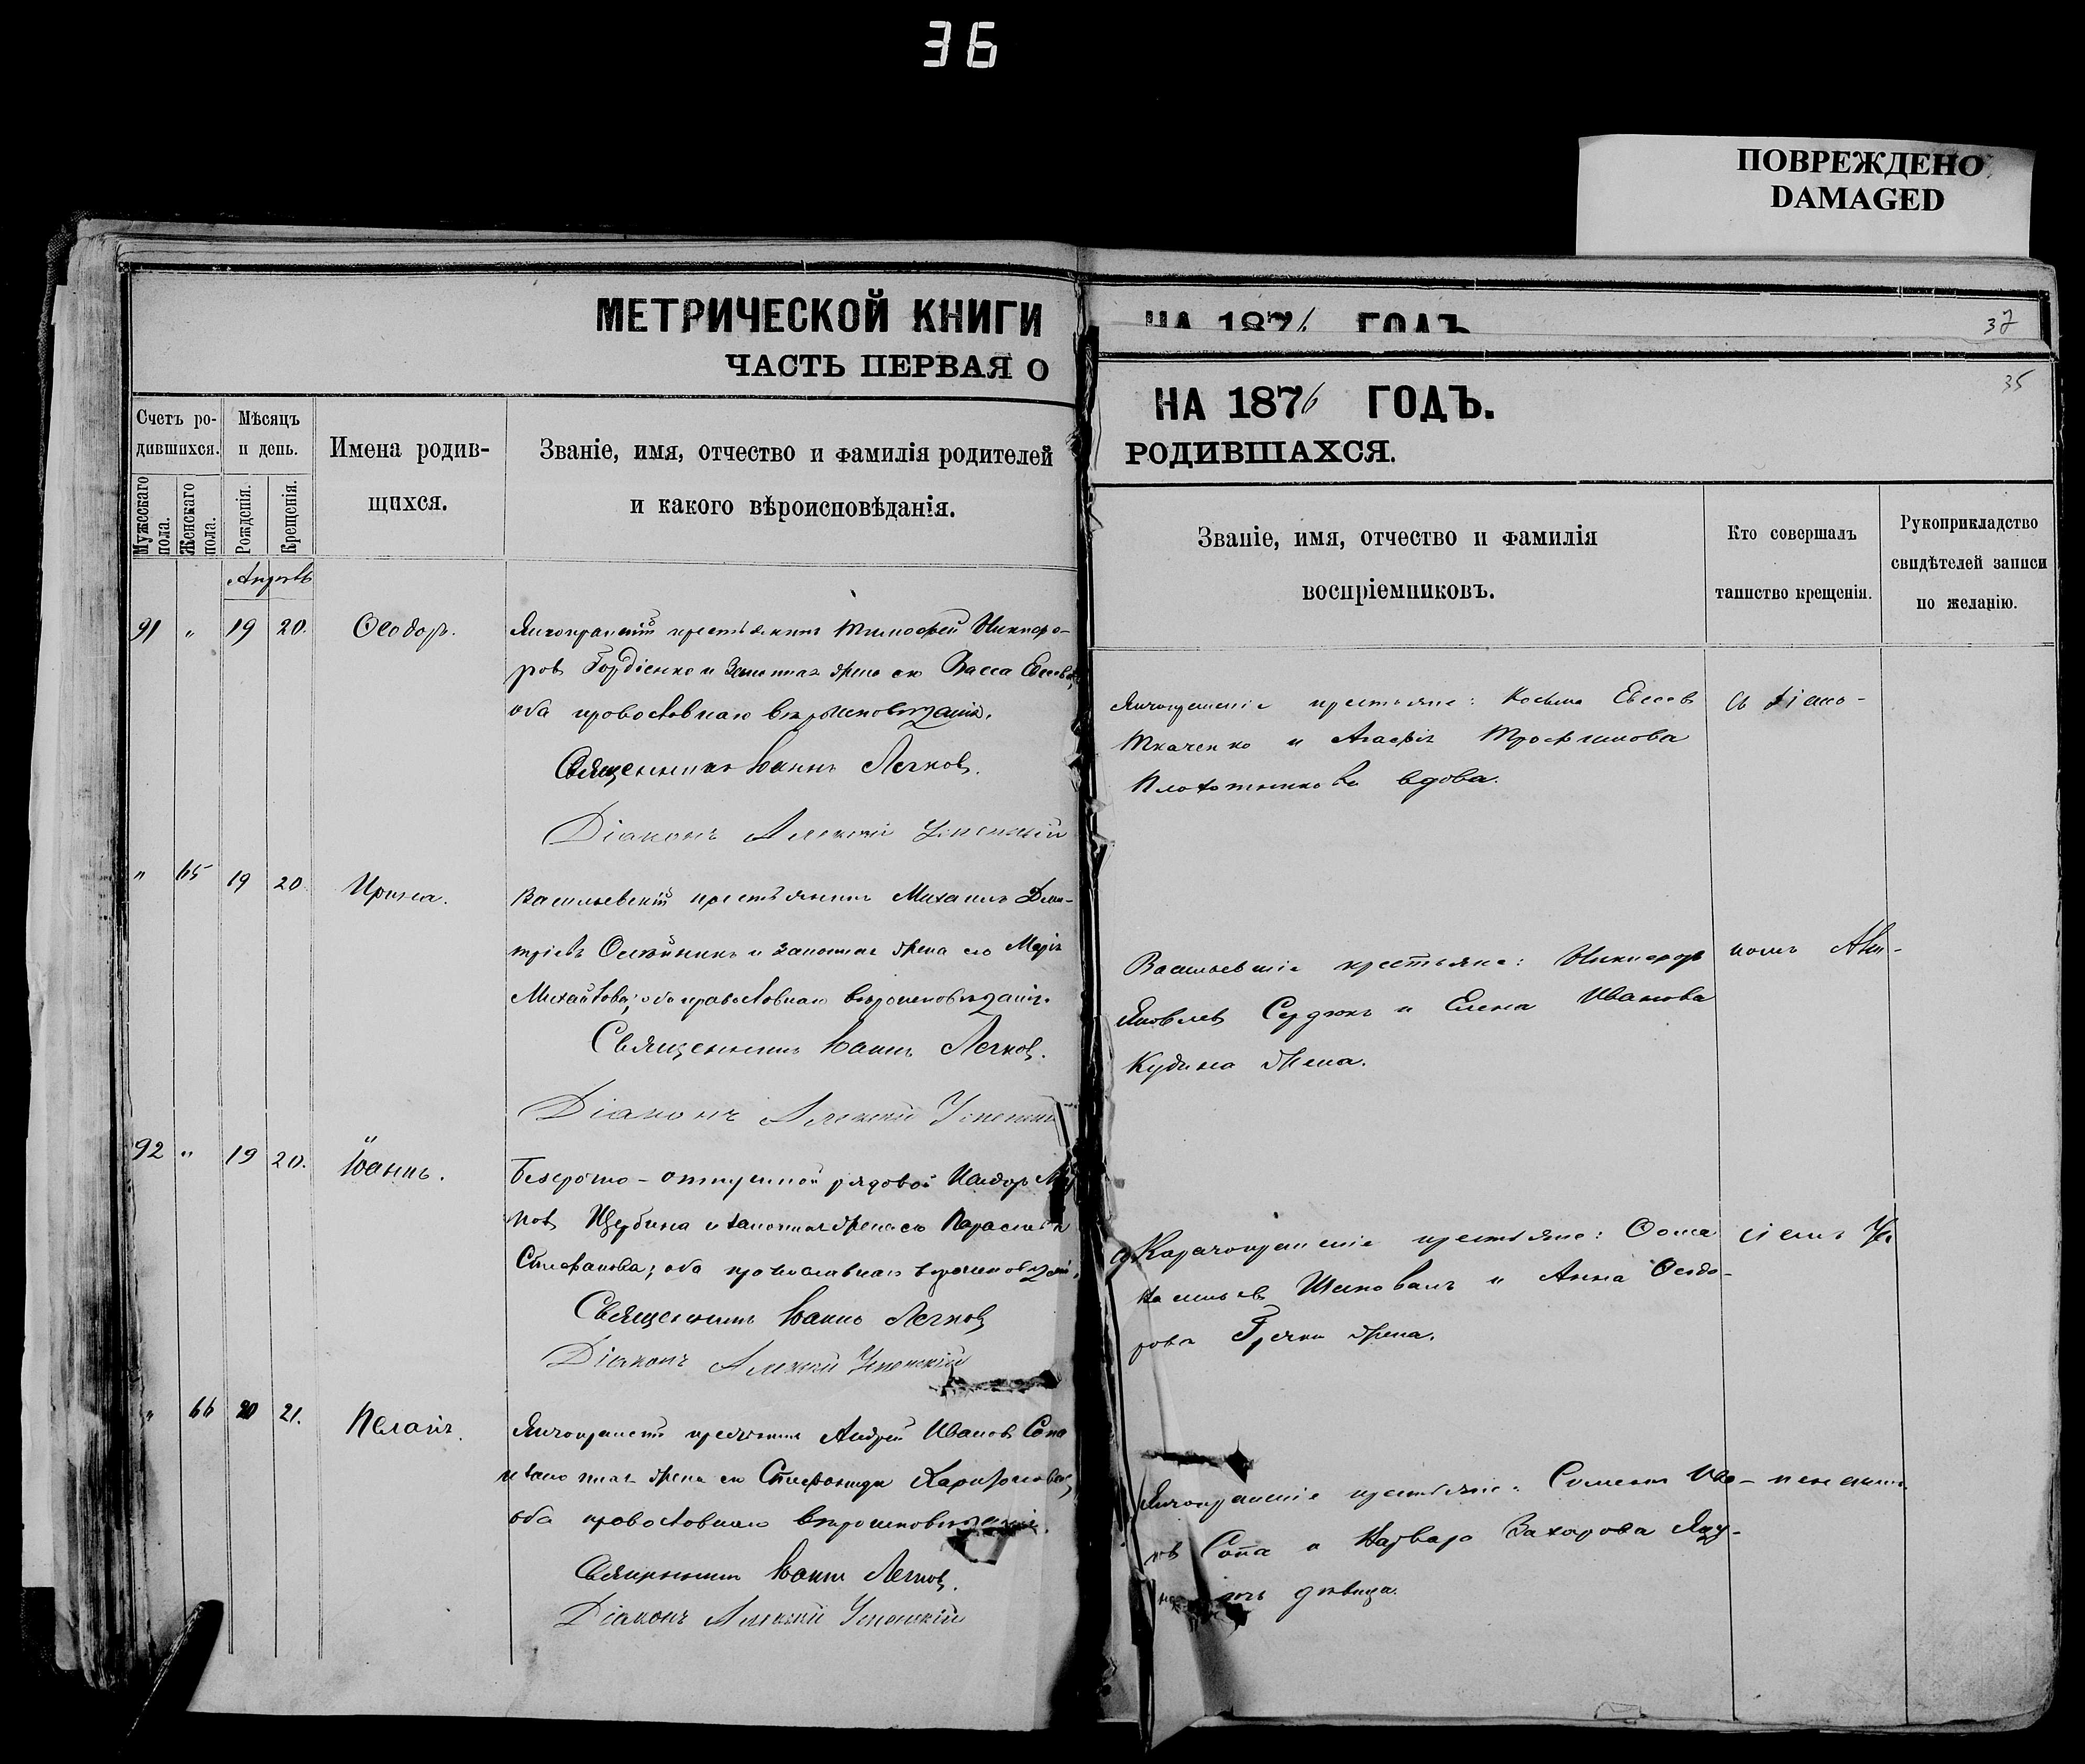 36
ПОВРЕЖДЕНО
DAMAGED
МЕТРИЧЕСКОЙ КНИГИ
ЧАСТЬ ПЕРВАЯ О
НА 1876 ГОДЪ
37
35
НА 1876 ГОДЪ.
РОДИВШАХСЯ.
Счетъ ро-
дившихся.
Мѣсяцъ
и день.
Имена родив-
щихся.
Званіе, имя, отчество и фамилія родителей
и какого вѣроисповѣданія.
Мужескаго пола.
Женскаго пола.
Рожденія.
Крещенія.
Званіе, имя, отчество и фамилія
воспріемниковъ.
Кто совершалъ
таинство крещенія.
Рукоприкладство
свидѣтелей записи
по желанію.
Апрель
91 " 19 20. Ѳеодоръ.
крестьянинъ Тимофей Никифо-
ровъ Гордіенко и законная жена его Васса
оба православнаго вѣроисповѣданія.
Священникъ Іоаннъ Легковъ.
Діаконъ Алексій Успенскій
крестьяне: Косьма Евсеевъ
Ткаченко и Агафія Трофимова
вдова.
съ діако-
" 65 19 20. Ирина.
Васильевскій крестьянинъ Михаилъ Дми-
тріевъ Олейникъ и законная жена его Марія
Михайлова; оба православнаго вѣроисповѣданія.
Священникъ Іоаннъ Легковъ.
Діаконъ Алексій Успенскій
Васильевскіе крестьяне: Никифоръ
Яковлевъ Сердюкъ и Елена Иванова
Кудина жена.
номъ Але-
92 " 19 20. Іоаннъ.
Безсрочно-отпускной рядовой Исидоръ
Щербина и законная жена его Параскева
Стефанова; оба православнаго вѣроисповѣданія.
Священникъ Іоаннъ Легковъ
Діаконъ Алексій Успенскій
крестьяне: Ѳома
Шаповалъ и Анна Ѳеодо-
рова Гречки жена.
ксіемъ Ус
" 66 20 21. Пелагія.
крестьянинъ Андрей Ивановъ Сопа
и законная жена его Стефанида Харитонова,
оба православнаго вѣроисповѣданія.
Священникъ Іоаннъ Легковъ.
Діаконъ Алексій Успенскій
крестьяне: Симеонъ Ива-
новъ Сопа и Варвара Захарова
дѣвица.
пенскимъ